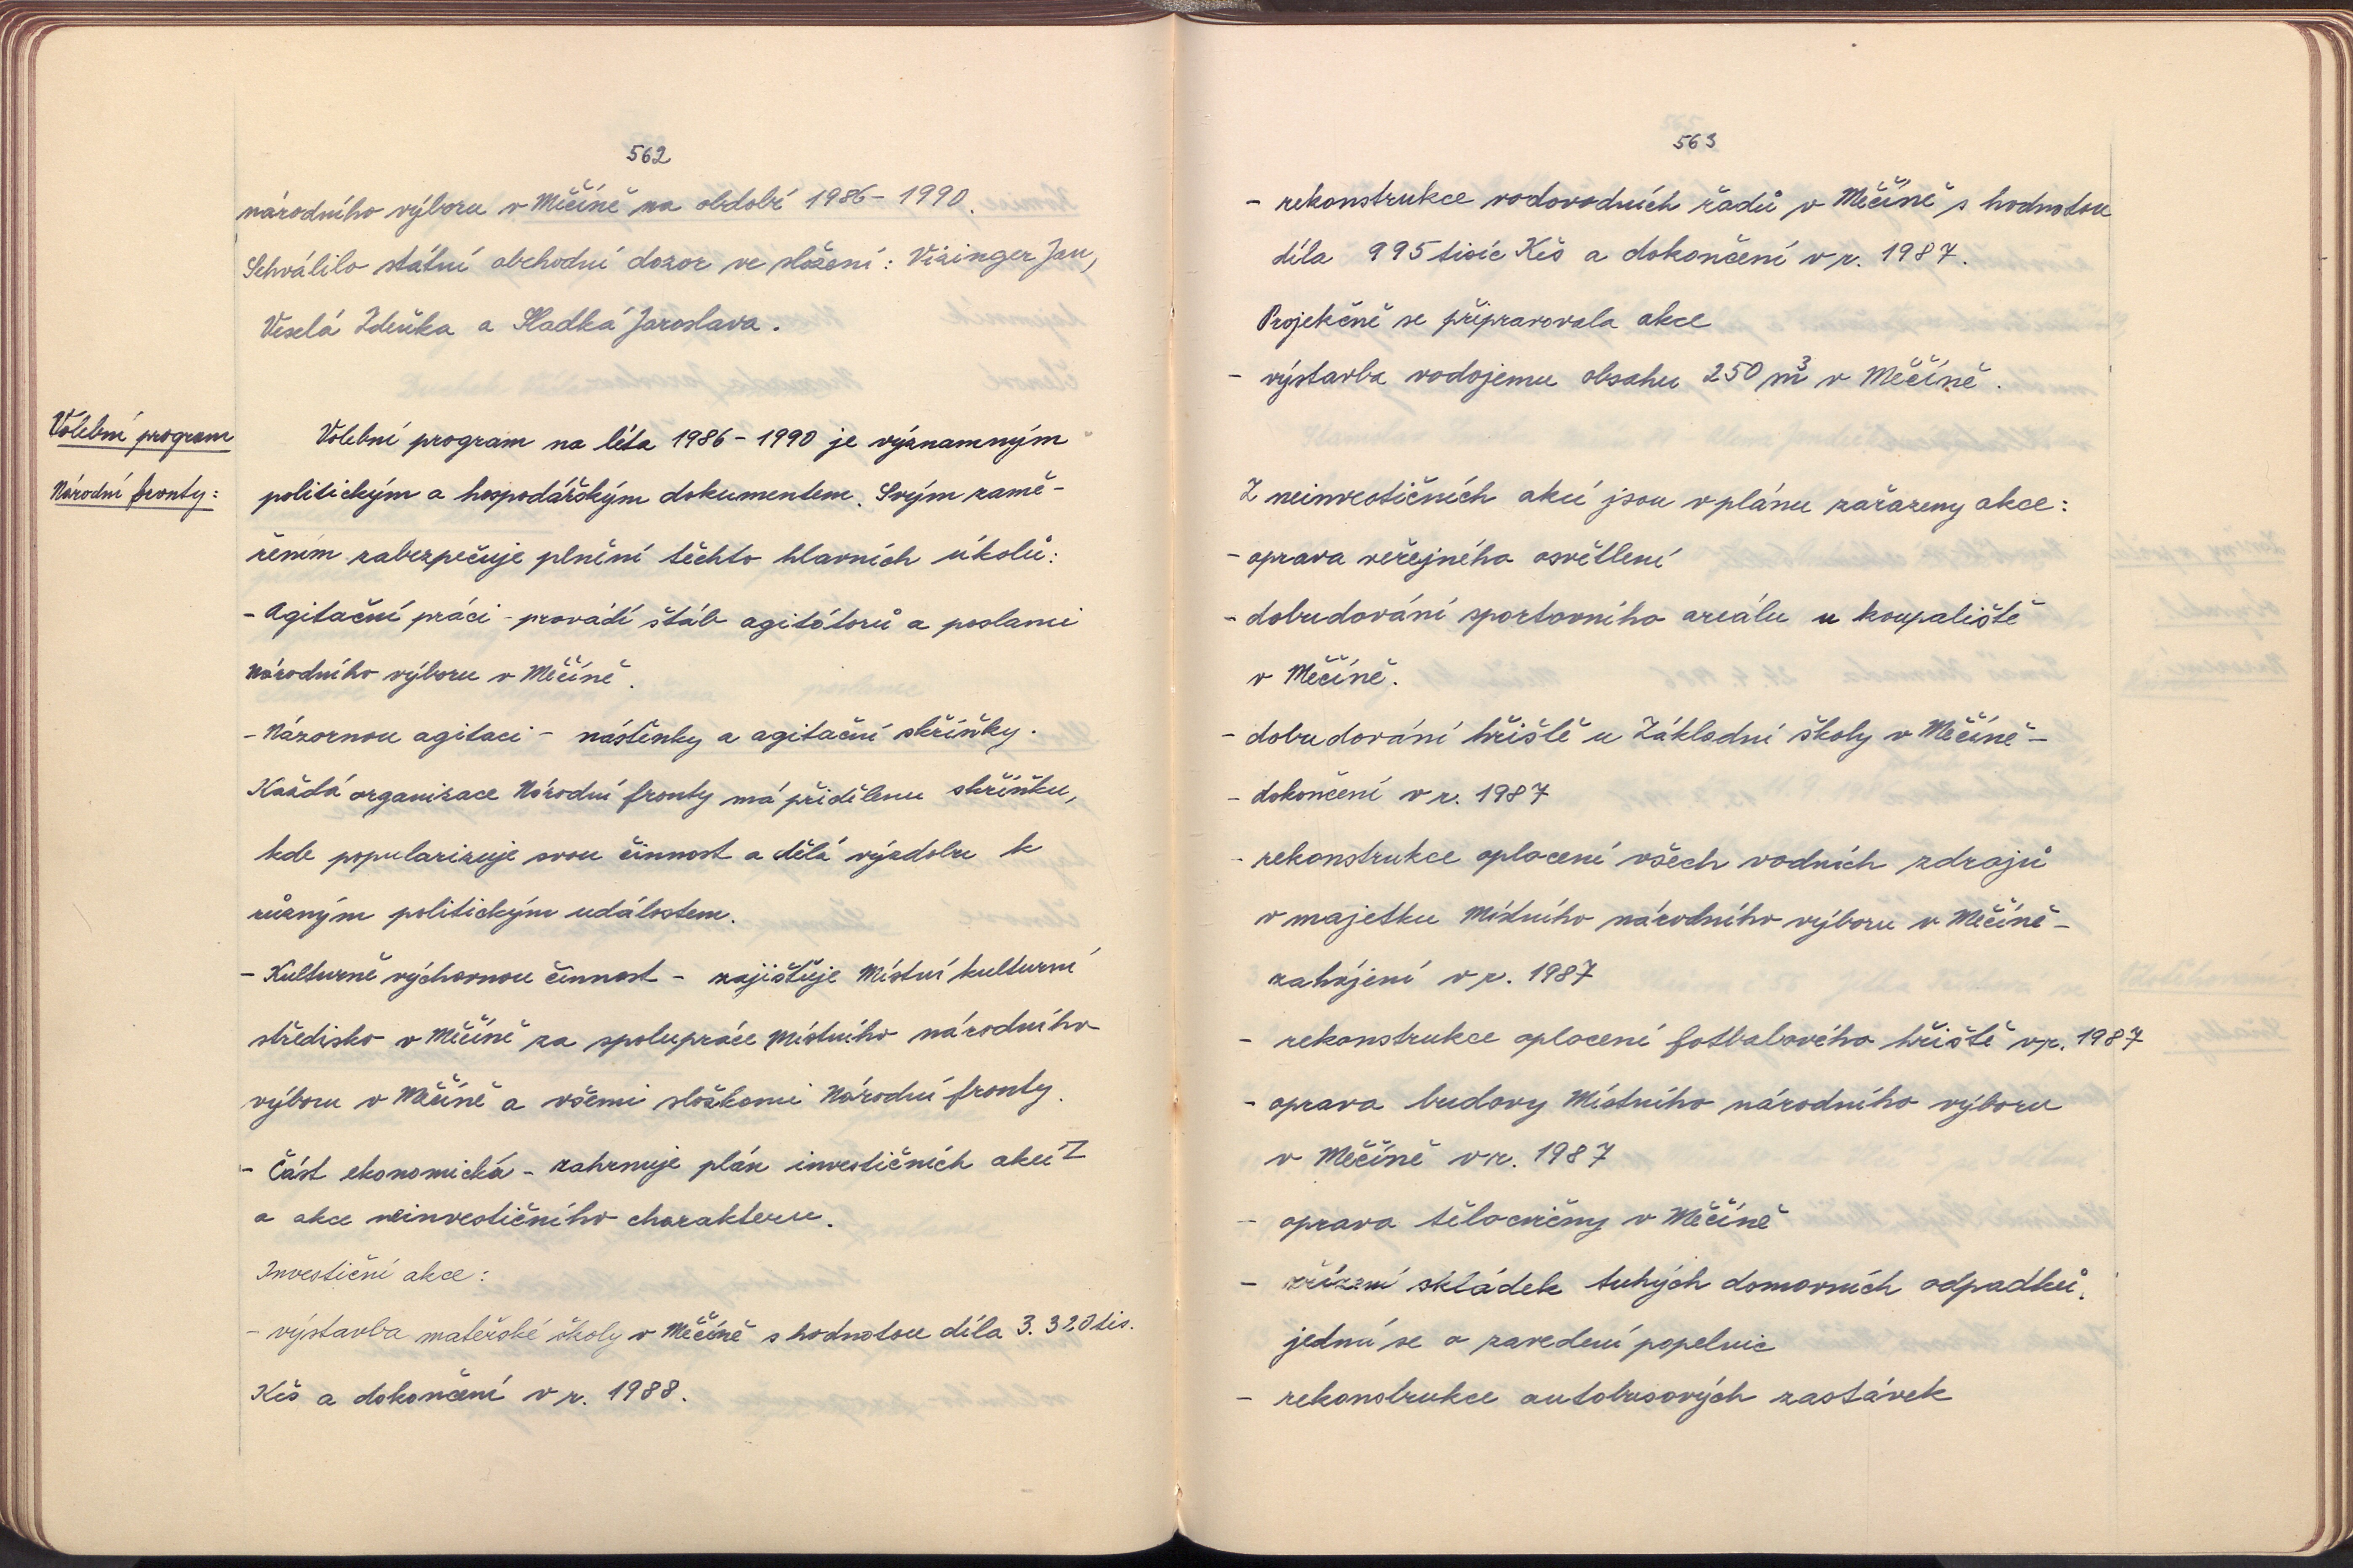 562
národního výboru v Měčíně na období 1986 - 1990.
Schválilo státní obchodní dozor ve složení: Vizinger Jan,
Veselá Zdeňka a Sladká Jaroslava.
Volební program
Národní fronty:
Volební program na léta 1986 - 1990 je významným
politickým a hospodářským dokumentem. Svým zamě-
řením zabezpečuje plnění těchto hlavních úkolů:
- Agitační práci - provádí štáb agitátorů a poslanci
Národního výboru v Měčíně.
- Názornou agitaci - nástěnky a agitační skříňky.
Každá organizace Národní fronty má přidělenu skříňku,
kde popularizuje svou činnost a dělá výzdobu k
různým politickým událostem.
- Kulturně výchovnou činnost - zajišťuje Místní kulturní
středisko v Měčíně za spolupráce Místního národního
výboru v Měčíně a všemi složkami Národní fronty.
- Část ekonomická - zahrnuje plán investičních akcí Z
a akce neinvestičního charakteru.
Investiční akce:
- výstavba mateřské školy v Měčíně s hodnotou díla 3.320 tis.
Kčs a dokončení v r. 1988.
563
- rekonstrukce vodovodních řadů v Měčíně s hodnotou
díla 995 tisíc Kčs a dokončení v r. 1987.
Projekčně se připravovala akce
- výstavba vodojemu obsahu 250 m³ v Měčíně.
Z neinvestičních akcí jsou v plánu zařazeny akce:
- oprava veřejného osvětlení
- dobudování sportovního areálu u koupaliště
v Měčíně.
- dobudování hřiště u Základní školy v Měčíně -
- dokončení v r. 1987
- rekonstrukce oplocení všech vodních zdrojů
v majetku Místního národního výboru v Měčíně -
zahájení v r. 1987
- rekonstrukce oplocení fotbalového hřiště v r. 1987
- oprava budovy Místního národního výboru
v Měčíně v r. 1987
- oprava tělocvičny v Měčíně
- zřízení skládek tuhých domovních odpadků,
jedná se o zavedení popelnic
- rekonstrukce autobusových zastávek